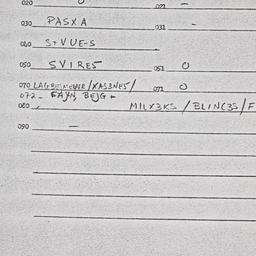 020
030 PASXA 031 -
040 S+VUE-S
050 SVIRES 051 0
070 /XASBNES/ 071 0
072- BEJG+
080 MILX3KS /BLINC3S/F
090 -